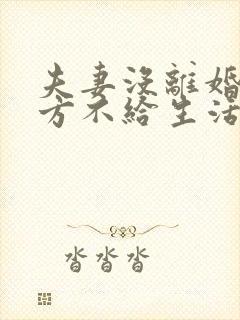 夫妻沒離婚
方不給生活
沓沓沓